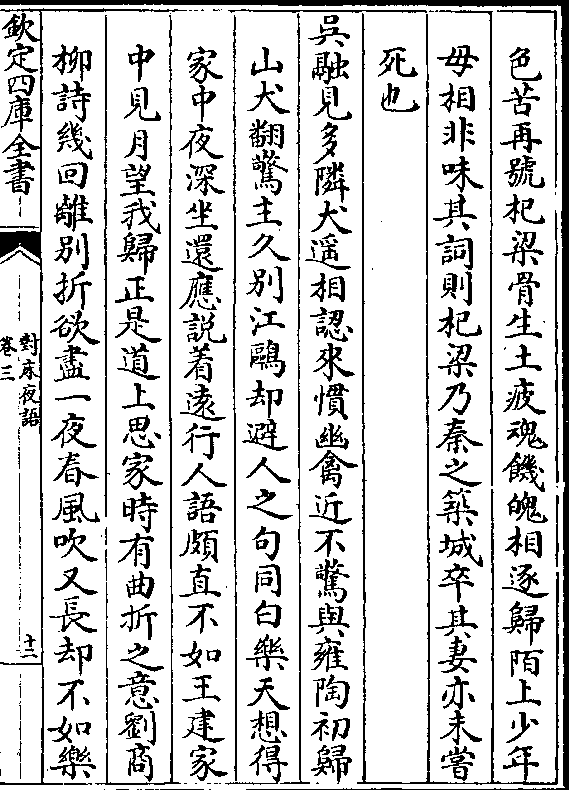 色苦再號杞梁骨生土疲魂饑魄相逐歸陌上少年
毋相非味其詞則杞梁乃秦之築城卒其妻亦未嘗
死也
吳融見多隣犬遥相認來慣幽禽近不驚與雍陶初歸
山犬翻驚主久别江鷗却避人之句同白樂天想得
家中夜深坐還應説着逺行人語頗直不如王建家
中見月望我歸正是道上思家時有曲折之意劉商
柳詩幾回離别折欲盡一夜春風吹又長却不如樂
欽定四庫全書
對床夜語
卷三
十二